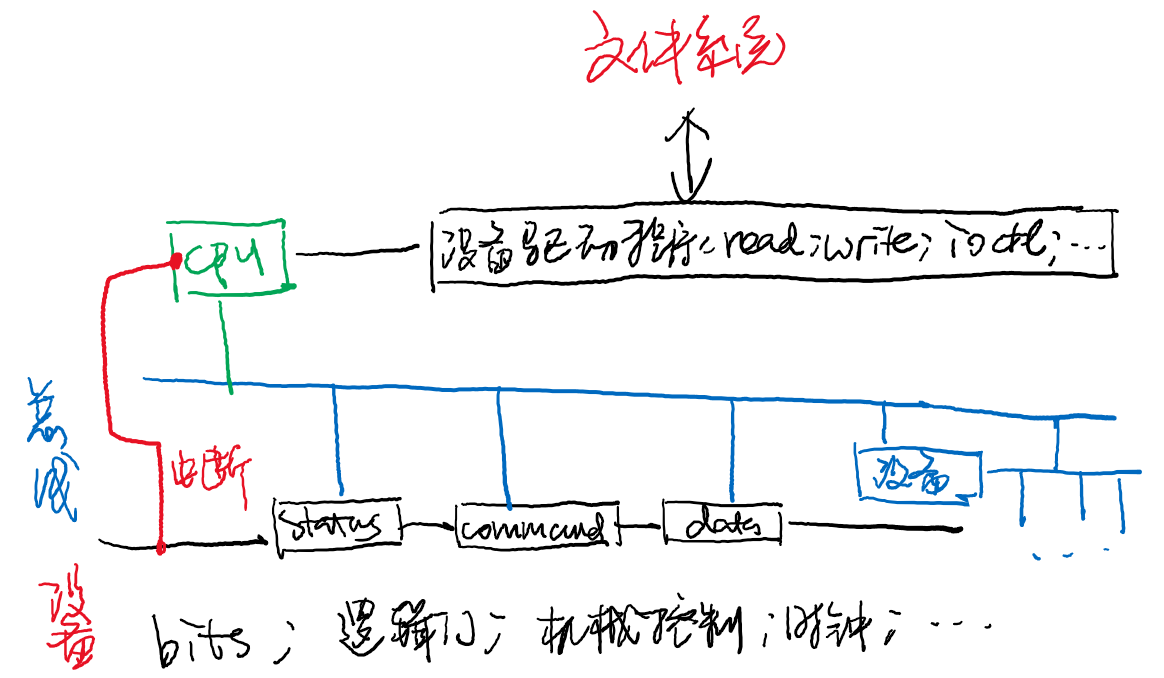 文件系统
CPU
设备驱动程序: read; write; ioctl; ...
总线
中断
设备
status
command
data
设备
bits; 逻辑门; 机械控制; 时钟; ...